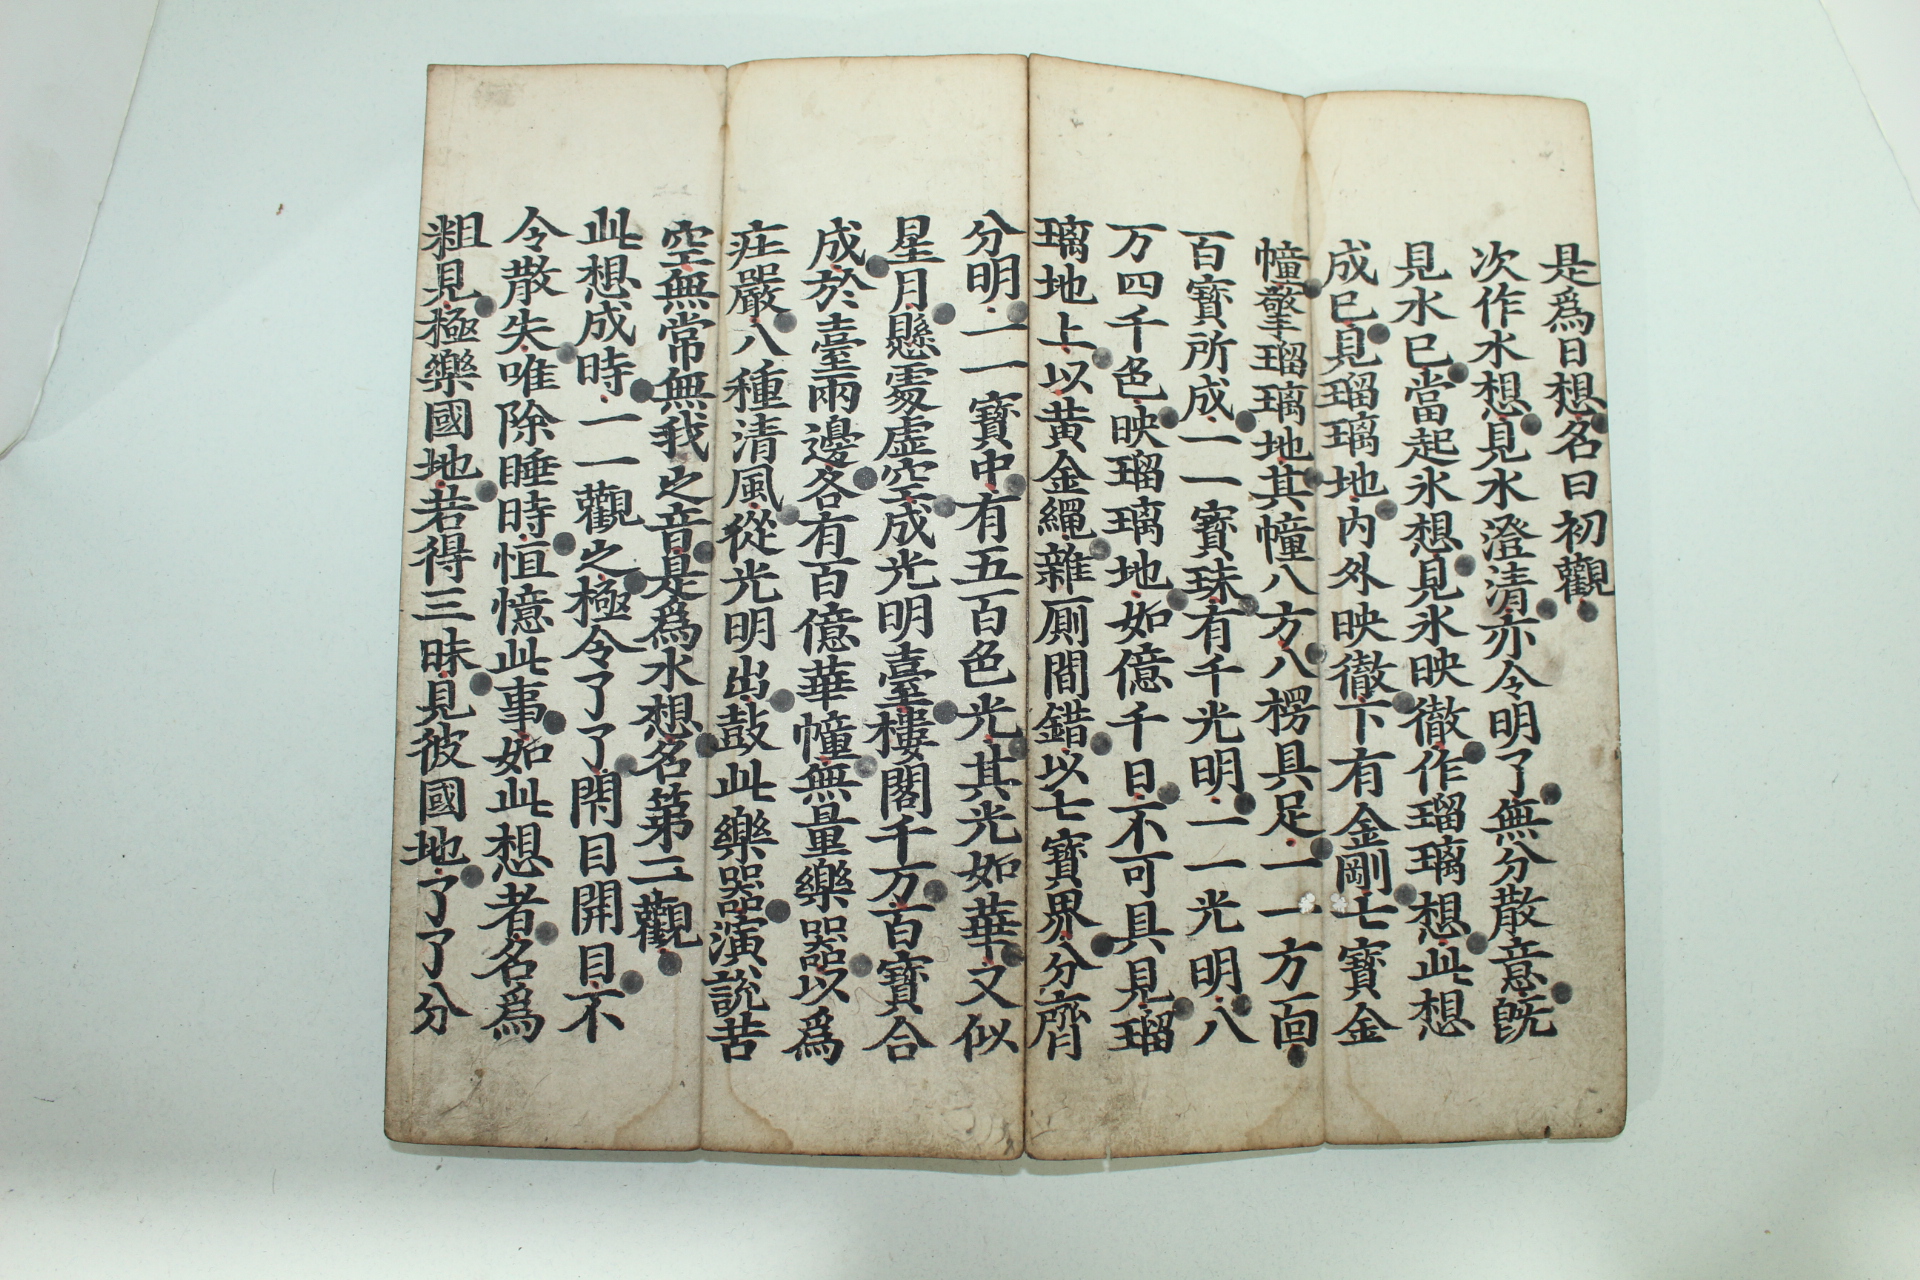 是爲日想名曰初觀
次作水想見水澄清亦令明了無分散意旣
見水已當起氷想見氷映徹作瑠璃想此想
成已見瑠璃地內外映徹下有金剛七寶金
幢擎瑠璃地其幢八方八楞具足一一方面
百寶所成一一寶珠有千光明一一光明八
万四千色映瑠璃地如億千日不可具見瑠
璃地上以黃金繩雜厠間錯以七寶界分齊
分明一一寶中有五百色光其光如華又似
星月懸處虛空成光明臺樓閣千万百寶合
成於臺兩邊各有百億華幢無量樂器以爲
庄嚴八種清風從光明出鼓此樂器演說苦
空無常無我之音是爲水想名第二觀
此想成時一一觀之極令了了閇目開目不
令散失唯除睡時恒憶此事如此想者名爲
粗見極樂國地若得三昧見彼國地了了分